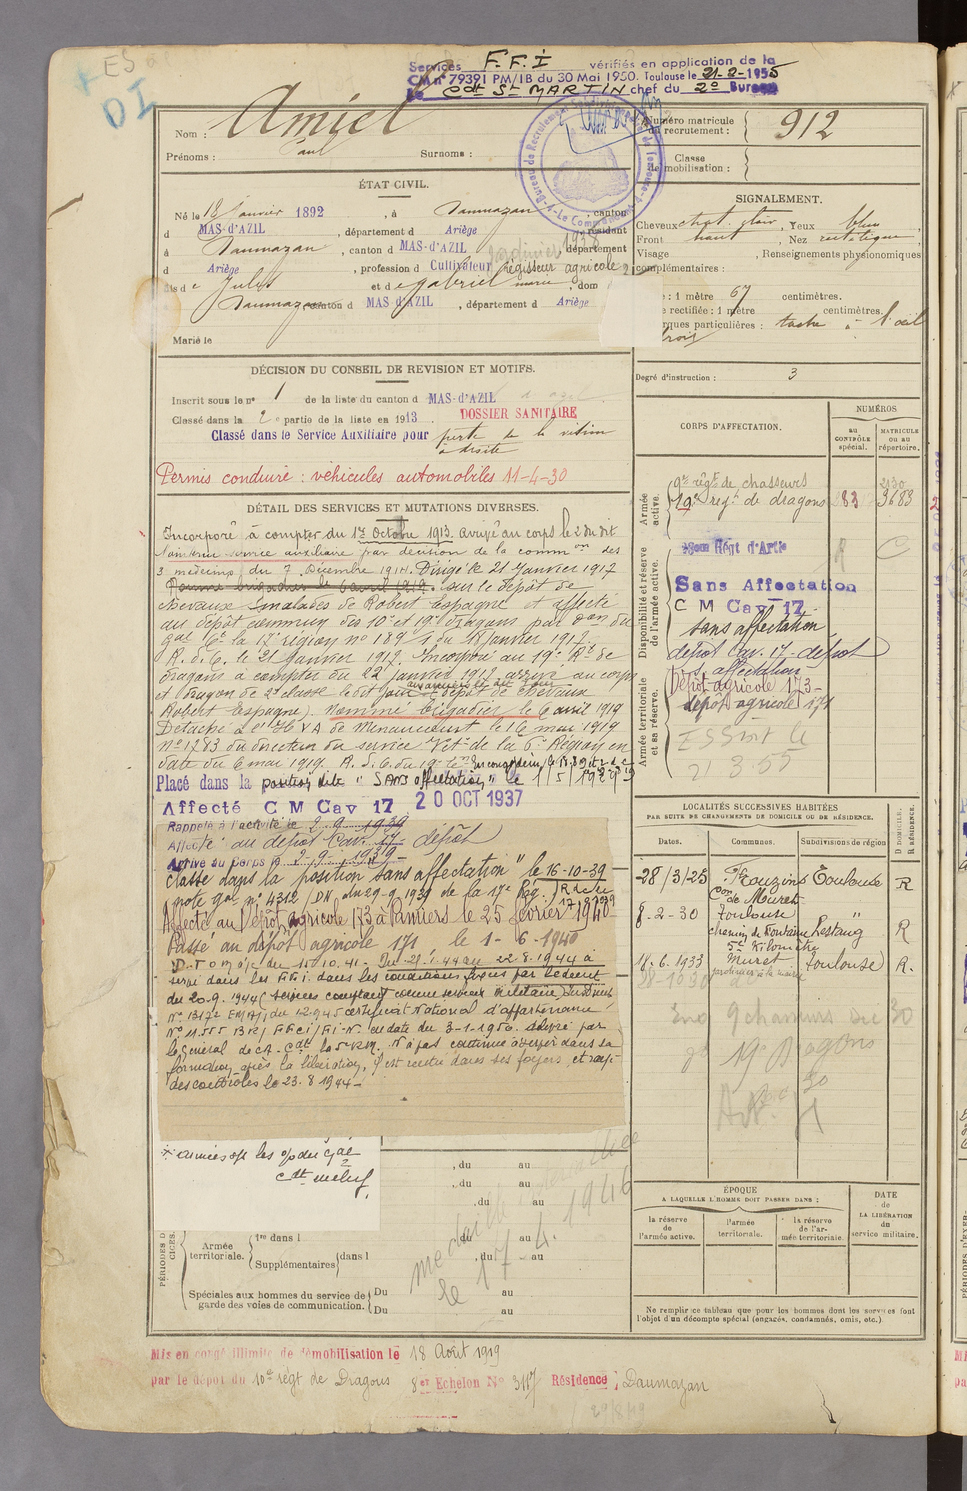 Services F.F.I vérifiés en application de la
CM n° 79391 PM/1B du 30 Mai 1950. Toulouse le 21-2-1955
Le Cdt St MARTIN chef du 2e Bureau
ES
DI
Nom : Amiel
Prénoms : Paul Surnoms :
Numéro matricule du recrutement : 912
Classe de mobilisation :
ÉTAT CIVIL.
Né le 18 Janvier 1892, à Daumazan, canton
d MAS-d'AZIL, département d Ariège, résidant
à Daumazan, canton d MAS-d'AZIL, département
d Ariège, profession d Cultivateur Régisseur agricole
fils de Jules et de Gabriel Marie, dom
Daumazan canton d MAS d'AZIL, département d Ariège
Marié le
SIGNALEMENT.
Cheveux chat. clair, Yeux bleu
Front haut, Nez rectiligne
Visage , Renseignements physionomiques
complémentaires :
: 1 mètre 67 centimètres.
rectifiée : 1 mètre centimètres.
rques particulières : tache à l'œil
droit
Degré d'instruction : 3
DÉCISION DU CONSEIL DE REVISION ET MOTIFS.
Inscrit sous le n° 1 de la liste du canton d MAS-d'AZIL
Classé dans la 2e partie de la liste en 1913. DOSSIER SANITAIRE
Classé dans le Service Auxiliaire pour perte de la vision
à droite
Permis conduire : véhicules automobiles 11-4-30
DÉTAIL DES SERVICES ET MUTATIONS DIVERSES.
Incorporé à compter du 1er Octobre 1913. arrivé au corps le dit
Maintenu service auxiliaire par décision de la common des
3 médecins du 7 Décembre 1914. Dirigé le 21 Janvier 1917
Nommé brigadier le 6 avril 1919. sur le dépôt de
chevaux malades de Robert Espagne et affecté
au dépôt commun des 10e et 19e Dragons par don du
gal Ct la 17e région n° 189 du 18 Janvier 1917.
R.d.C. le 21 Janvier 1917. Incorporé au 19e Rt de
dragons à compter du 22 janvier 1917 arrivé au corps
et dragon de 2e classe le dit jour dépôt de chevaux
Robert Espagne). Nommé brigadier le 6 avril 1919
Détaché à l'H.V.A de Menaucourt le 16 mai 1919
N° 1783 du directeur du service Vét. de la 6e Région en
date du 6 mai 1919. R.d.C. du 19e
Placé dans la position dite "SANS affectation" le 1/5/1929
Affecté C M Cav 17 20 OCT 1937
Rappelé à l'activité le 2.9.1939
Affecté au dépôt Cav. 17 dépôt
Arrivé au corps le 2-9-1939
classé dans la position "sans affectation" le 16-10-39
note gal n° 4312/DN du 29-9-1939 de la 17e Rég.
Affecté au Dépôt agricole 173 à Pamiers le 25 février 1940
Passé au dépôt agricole 171 le 1-6-1940
servi dans les F.F.I. dans les conditions fixées par le décret
du 20-9-1944 (services comptant comme services militaires)
certificat National d'appartenance
N° 11.555 en date du 3-1-1950 délivré par
le Général de C.A. Cdt la 5e R.M. N'a pas continué à servir dans sa
formation après la libération, est rentré dans ses foyers et rayé
des contrôles le 23.8.1944-
CORPS D'AFFECTATION.
NUMÉROS
au CONTRÔLE spécial.
MATRICULE ou au répertoire.
Armée active.
9e régt de chasseurs 2130
19e regt de dragons 83 3683
Disponibilité et réserve de l'armée active.
Régt d'Artie
Sans Affectation
C M Cav 17
sans affectation
dépôt Cav. 17 - dépôt
affectation
Armée territoriale et sa réserve.
Dépôt agricole 173 -
dépôt agricole 171
21 3.55
LOCALITÉS SUCCESSIVES HABITÉES
PAR SUITE DE CHANGEMENTS DE DOMICILE OU DE RÉSIDENCE.
Dates. Communes. Subdivisions de région D DOMICILE. R RÉSIDENCE.
28/3/25 Frouzins Toulouse R
Con de Muret
8-2-30 Toulouse " R
chemin de Fontaine Lestang
18.6.1933 Muret Toulouse R.
19e Dragons
médaille
le 17 4. 1946
, du au
, du au
, du au
du au
, du au
PÉRIODES D CICES.
Armée territoriale. 1re dans l
Supplémentaires dans l
Spéciales aux hommes du service de garde des voies de communication. Du au
Du au
ÉPOQUE
A LAQUELLE L'HOMME DOIT PASSER DANS :
la réserve de l'armée active.
l'armée territoriale.
la réserve de l'armée territoriale.
DATE de LA LIBÉRATION du service militaire.
Ne remplir ce tableau que pour les hommes dont les services font
l'objet d'un décompte spécial (engagés, condamnés, omis, etc.)
Mis en congé illimité de démobilisation le 18 Août 1919
par le dépôt du 10e régt de Dragons 8e Echelon N° 3117 Résidence : Daumazan